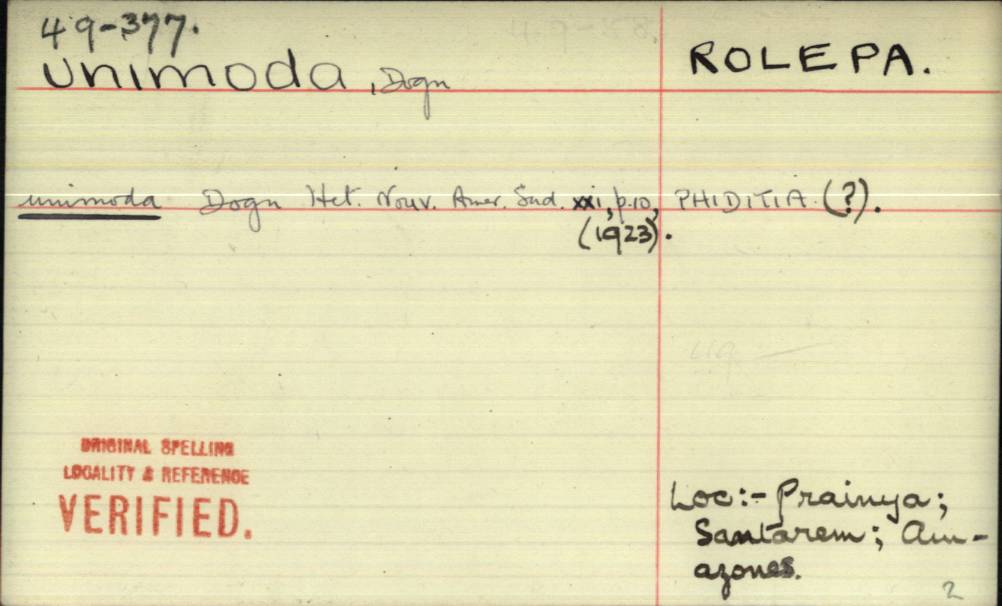 49-377.
unimoda, Dogn
ROLEPA.
unimoda Dogn Het. Nouv. Amer. Sud. xxi, p.10, PHIDITIA. (?).
(1923).
49 —
ORIGINAL SPELLING
LOCALITY & REFERENCE
VERIFIED.
Loc:- Prainya;
Santarem; Am-
azones.
2